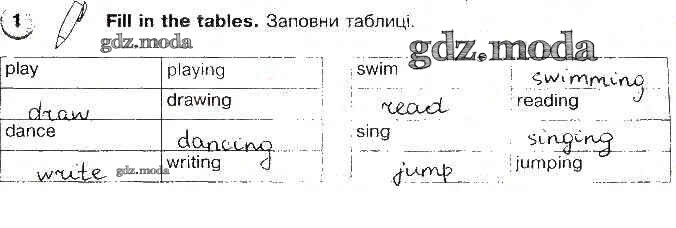 1 Fill in the tables. Заповни таблиці.
gdz.moda
gdz.moda
play playing
draw drawing
dance dancing
write writing
gdz.moda
swim swimming
read reading
sing singing
jump jumping